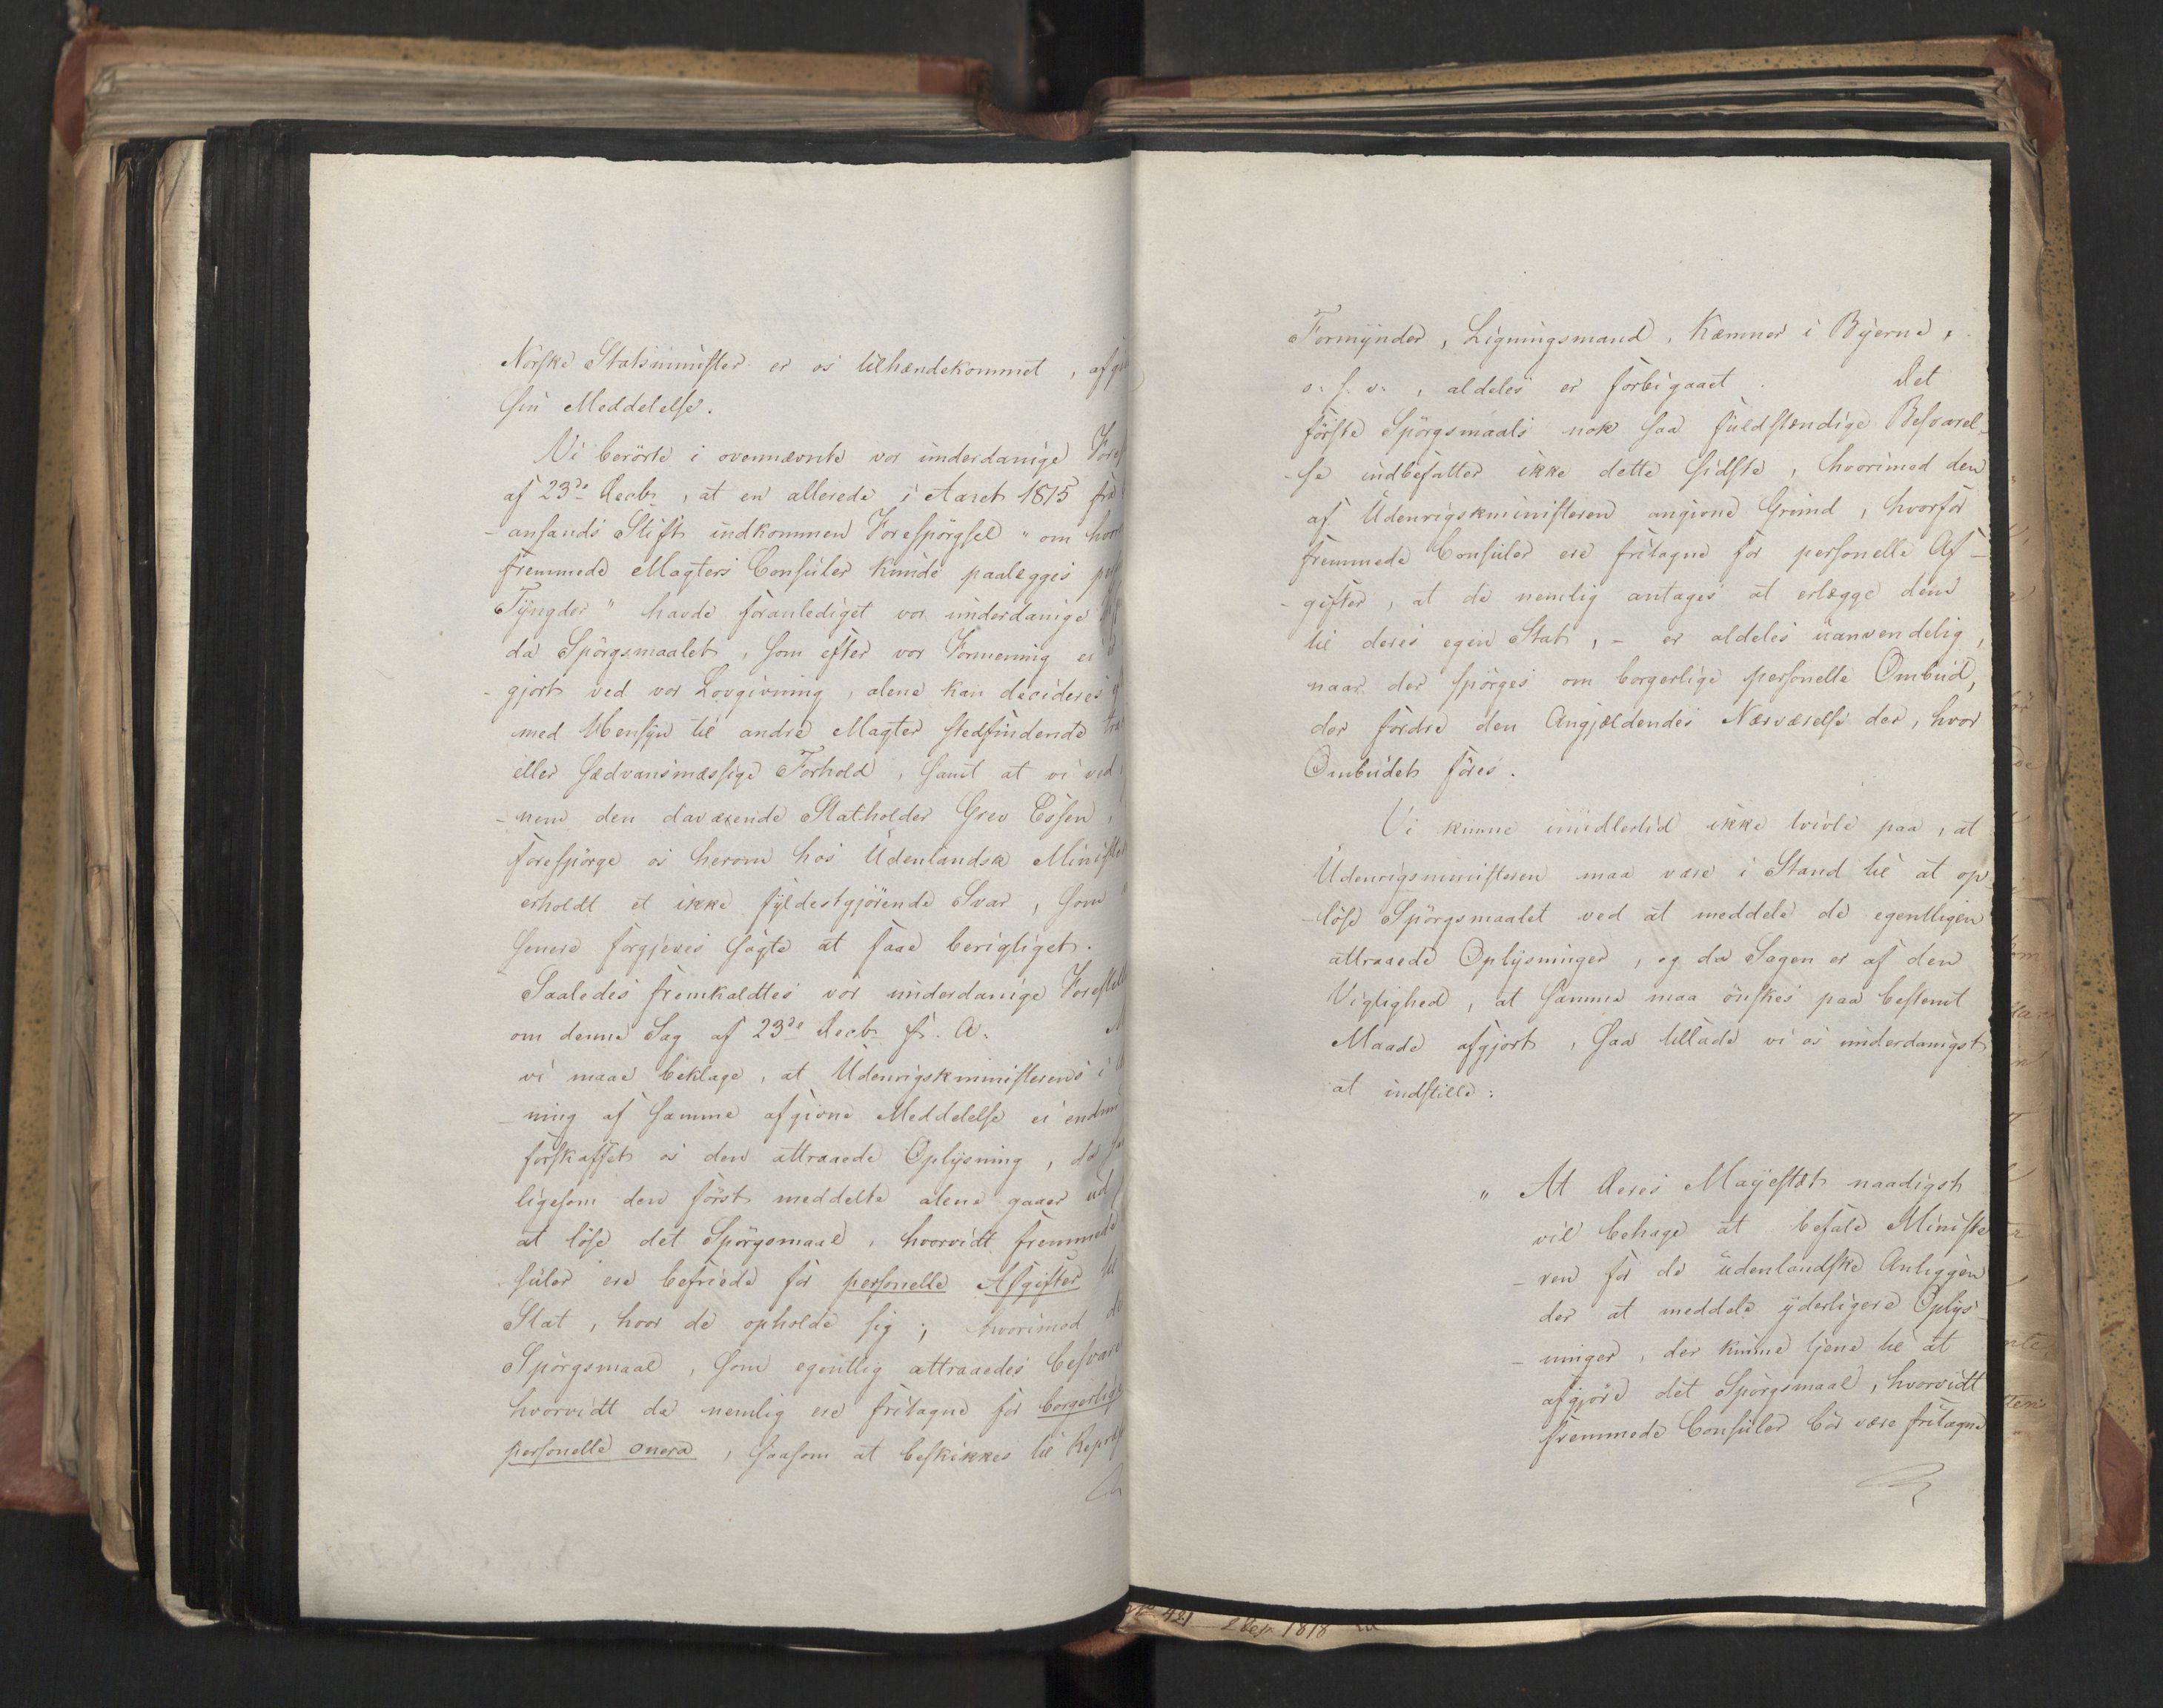 Norske Statsminister er os tilhændekommet, afgi
sin Meddelelse.
Vi berörte i ovennævnte vor underdanige Fores
af 23de Decbr, at en allerede i Aaret 1815 fra
-ansands Stift indkommen Forespörgsel "om hvor
fremmede Magters Consuler kunde paalægges pe
Tyngder" havde foranlediget vor underdanige
da Spörgsmaalet, som efter vor Formening er
-gjort ved vor Lovgivning, alene kan decideres
med Hensyn til andre Magter stedfindende tra
eller sædvansmæssige Forhold, samt at vi ved
-nem den daværende Statholder Grev Essen,
forespörge os herom hos Udenlandske Ministe
erholdt et ikke fyldestgjörende Svar, som
senere forgjeves sögte at faae berigtiget.
Saaledes fremkaldtes vor underdanige Forestell
om denne Sag af 23de Decbr f. A. M
vi maae beklage, at Udenrigskministerens i
-ning af samme afgivne Meddelelse ei endnu
forskaffet os den attraaede Oplysning, da
ligesom den först meddelte alene gaaer ud
at löse det Spörgsmaal, hvorvidt fremmede
suler ere befriede for personelle Afgifter til
Stat, hvor de opholde sig; hvorimod de
Spörgsmaal, som egentlig attraaedes besvare
hvorvidt de nemlig ere fritagne for borgerlige
personelle onera, saasom at beskikkes til Repræs
Formynder, Ligningsmand, Kæmner i Byerne,
o. s. v., aldeles er forbigaaet. Det
förste Spörgsmaals nok saa fuldstændige Besvarel-
-se indbefatter ikke dette sidste, hvorimod den
af Udenrigskministeren angivne Grund, hvorfor
fremmede Consuler ere fritagne for personelle Af-
-gifter, at de nemlig antages at erlægge dem
til deres egen Stat, - er aldeles uanvendelig,
naar der spörges om borgerlige personelle Ombud,
der fordre den Angjældendes Nærværelse der, hvor
Ombudet föres.
Vi kunne imidlertid ikke tvivle paa, at
Udenrigsministeren maa være i Stand til at op-
-löse Spörgsmaalet ved at meddele de egentligen
attraaede Oplysninger, og da Sagen er af den
Vigtighed, at samme maa önskes paa bestemt
Maade afgjort, saa tillade vi os underdanigst
at indstille:
" At Deres Majestæt naadigst
vil behage at befale Ministe
-ren for de udenlandske Anliggen
der at meddele yderligere Oplys-
-ninger, der kunne tjene til at
afgjöre det Spörgsmaal, hvorvidt
fremmede Consuler bör være fritagne
No 421 2 Sep. 1818